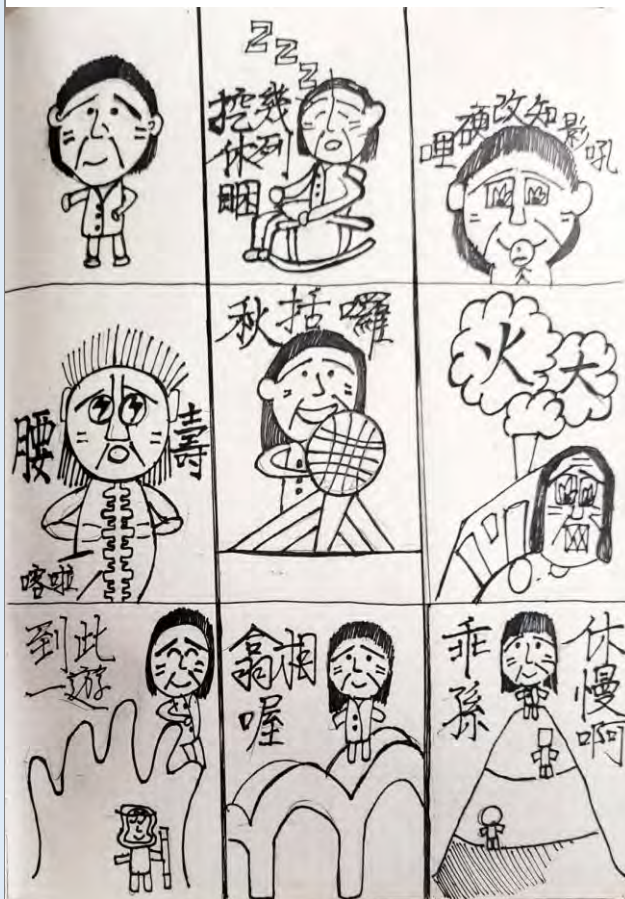 ZZZ
挖幾列
休睏
哩改知影吼
腰壽
喀啦
秋括囉
火大
到此
一遊
翕相
喔
乖孫
休慢啊